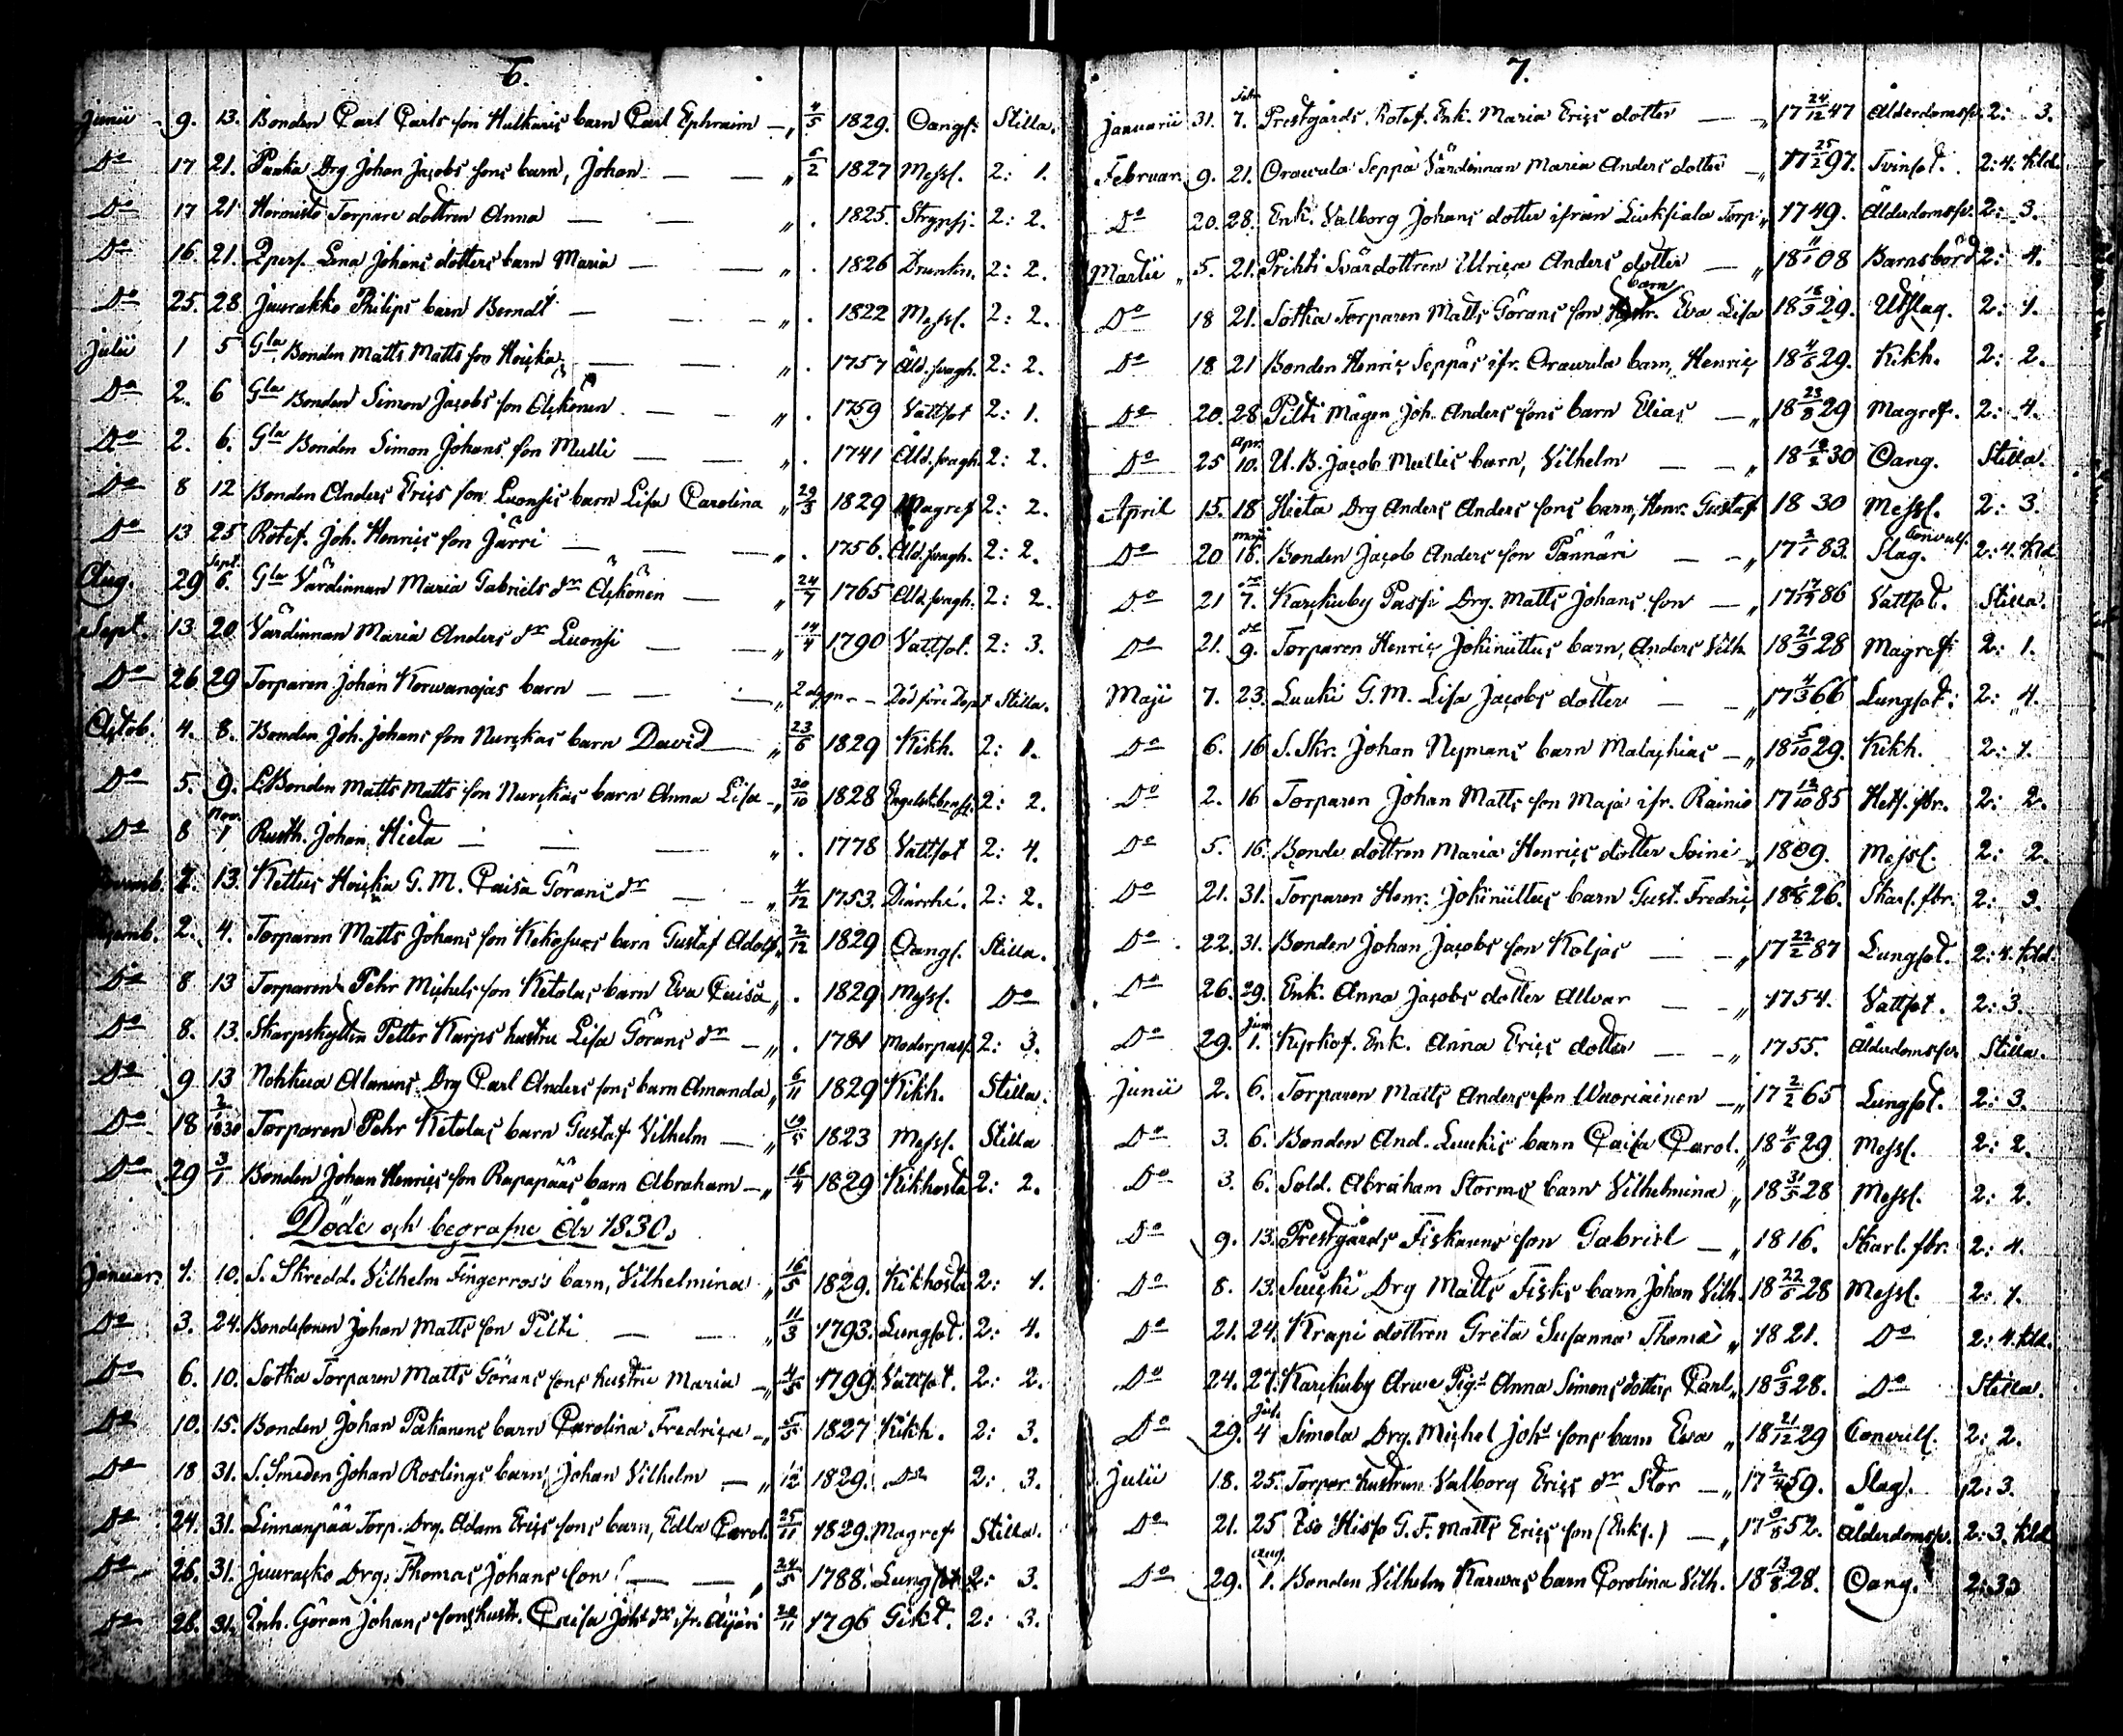 6.
Junii 9. 13. Bonden Carl Carls son Hulkaris barn Carl Ephraim — „ 4/5 1829. Oangf. Stilla.
Do 17 21. Panka Drg Johan Jacobs sons barn, Johan — — „ 6/2 1827 Messl. 2: 1.
Do 17 21 Hormisto Torpare dottren Anna — — „ . 1825. 2: 2.
Do 16. 21. Qpers. Lena Johans dotters barn Maria — — „ . 1826 Drunkn. 2: 2.
Do 25. 28. Juurakko Philips barn Berndt — — „ . 1822 Messl. 2: 2.
Julii 1 5 Gla Bonden Matts Matts son Hoicka — — „ . 1757 Åld.svagh. 2: 2.
Do 2. 6 Gla Bonden Simon Jacobs son Äckönen — — „ . 1759 Vattsot 2: 1.
Do 2. 6. Gla Bonden Simon Johans son Mulli — — „ . 1741 Åld.svagh. 2: 2.
Do 8 12 Bonden Anders Erics son Luonsis barn Lisa Carolina „ 29/3 1829 Magref 2: 2.
Do 13 25 Rotef. Joh. Henrics son Järri — — „ . 1756. Åld.svagh. 2: 2.
Aug. 29 Sept. 6. Gla Värdinnan Maria Gabriels dr Äckönen — „ 24/7 1765 Åld.svagh. 2: 2.
Sept. 13 20 Värdinnan Maria Anders dr Luonsi — — „ 14/4 1790 Vattsot. 2: 3.
Do 26. 29 Torparen Johan Korwanojas barn — — — „ 2 dygn — Död före Dopet Stilla.
Octob. 4. 8. Bonden Joh. Johans son Nurckas barn David — „ 23/6 1829 Kikh. 2: 1.
Do 5. 9. Bonden Matts Matts son Nurckas barn Anna Lisa „ 30/10 1828 2: 2.
Do 8 Nov. 1 Rusth. Johan Hieta — — — „ . 1778 Vattsot 2: 4.
2. 13. Kettus Hoicka G. M. Caisa Görans dr — — „ 4/12 1753. Diarrhé. 2: 2.
2. 4. Torparen Matts Johans son barn Gustaf Adolf „ 2/12 1829 Oangf. Stilla.
Do 8 13 Torparen Pehr Michels son Ketolas barn Eva Caisa „ . 1829 Messl. Do
Do 8. 13. Skarpskytten Petter Karps hustru Lisa Görans dr — „ . 1781 Moderpass. 2: 3.
Do 9 13 Nohkua Alanens Drg Carl Anders sons barn Amanda „ 6/11 1829 Kikh. Stilla.
Do 18 2/1 1830 Torparen Pehr Ketolas barn Gustaf Vilhelm — „ 19/5 1823 Messl. Stilla
Do 29 3/1 Bonden Johan Henrics son Rapapääs barn Abraham — „ 16/4 1829 Kikhosta 2: 2.
Döde och begrafne År 1830.
Januar. 1. 10. S. Skredd. Vilhelm Fingerross's barn, Vilhelmina „ 16/5 1829. Kikhosta 2: 1.
Do 3. 24. Bondesonen Johan Matts son Pilti — — „ 11/3 1793. Lungsot. 2: 4.
Do 6. 10. Sotka Torparen Matts Görans sons hustru Maria — „ 4/5 1799. Vattsot. 2: 2.
Do 10. 15. Bonden Johan Pakanens barn Carolina Fredrica — „ 5/5 1827 Kikh. 2: 3.
Do 18 31. S. Smeden Johan Roslings barn, Johan Vilhelm — „ /12 1829. Do 2: 3.
Do 24. 31. Linnanpää Torp. Drg. Adam Erics sons barn, Edla Carol. 25/11 1829. Magref Stilla.
Do 26. 31. Juuracko Drg. Thomas Johans son — — „ 24/5 1788. Lungsot 2: 3.
Do 28. 31. Inh. Göran Johans sons hustr. Caisa Johs dr ifr. Äijäri 20/11 1796 Gikt. 2: 3.
7.
Januarii 31. Febr. 7. Prestgårds Rotef. Enk. Maria Erics dotter — „ 17 24/12 47 Ålderdomssv. 2: 3.
Februari 9. 21. Orawula Seppä Värdinnan Maria Anders dotter — „ 17 25/2 97. Tvinsot. 2: 4. kld.
Do 20. 28. Enk. Valborg Johans dotter ifrån Liuksiala Torp „ 1749. Ålderdomssv. 2: 3.
Martii 5. 21. Prihti Svärdottren Ulrica Anders dotter — „ 18 11/1 08 Barnsbörd 2: 4.
Do 18 21. Sotka Torparen Matts Görans son barn Eva Lisa 18 18/9 29. Utslag. 2: 1.
Do 18 21 Bonden Henric Seppäs ifr. Orawula barn, Henric 18 4/6 29. Kikh. 2: 2.
Do 20. 28. Pilti Mågen Joh. Anders sons barn Elias — „ 18 23/8 29 Magref. 2: 4.
Do 25 Apr. 10. U. B. Jacob Mullis barn, Vilhelm — — „ 18 12/2 30 Oang. Stilla.
April 15. 18 Hieta Drg Anders Anders sons barn, Henr. Gustaf 18 30 Messl. 2: 3.
Do 20 Maji 16. Bonden Jacob Anders son Pännäri — — „ 17 2/1 83. Convuls. Slag. 2: 4. kld.
Do 21 do 7. Karckuby Passi Drg. Matts Johans son — „ 17 86 Vattsot. Stilla.
Do 21. do 9. Torparen Henric Jokinüttus barn, Anders Vilh. 18 21/9 28 Magref. 2: 1.
Maji 7. 23. Luuki G. M. Lisa Jacobs dotter — — „ 17 4/3 66 Lungsot. 2: 4.
Do 6. 16 S. Skr. Johan Nymans barn Malachias — „ 18 5/10 29. Kikh. 2: 1.
Do 2. 16 Torparen Johan Matts son Maja ifr. Rainio 17 12/10 85 Hets. fbr. 2: 2.
Do 5. 16. Bonde dottren Maria Henrics dotter Soini „ 1809. Messl. 2: 2.
Do 21. 31. Torparen Henr. Jokinüttus barn Gust. Fredric 18 26. Skarl. fbr. 2: 3.
Do 22. 31. Bonden Johan Jacobs son Koljas — — „ 17 22/2 87 Lungsot. 2: 4. kld.
Do 26. 29. Enk. Anna Jacobs dotter Allvar — — „ 1754. Vattsot. 2: 3.
Do 29. Jun. 1. Kyrkof. Enk. Anna Erics dotter — — „ 1755. Ålderdomssv. Stilla.
Junii 2. 6. Torparen Matts Anders son Wuoriainen — „ 17 2/2 65 Lungsot. 2: 3.
Do 3. 6. Bonden And. Luukis barn Caisa Carol. „ 18 4/6 29 Messl. 2: 2.
Do 3. 6. Sold. Abraham Storms barn Vilhelmina „ 18 31/5 28 Messl. 2: 2.
Do 9. 13. Prestgårds Fiskarens son Gabriel — „ 1816. Skarl. fbr. 2: 4.
Do 8. 13. Suicki Drg Matts Fisks barn Johan Vilh. 18 22/6 28 Messl. 2: 1.
Do 21. 24. Krapi dottren Greta Susanna Thomæ „ 1821. Do 2: 4. kld.
Do 24. 27. Karckuby Arwe Pigs Anna Simons dotters Carl „ 18 6/3 28. Do Stilla.
Do 29. Jul. 4 Simola Drg. Michel Johs sons barn Eva „ 18 21/12 29 Convuls. 2: 2.
Julii 18. 25. Torpar hustrun Valborg Erics dr Stor — „ 17 59. Slag. 2: 3.
Do 21. 25 Iso Hiiso G. F. Matts Erics son (Enkl.) — „ 17 9/8 52. Ålderdomsv. 2: 3. kld
Do 29. Aug. 1. Bonden Vilhelm Karwas barn Carolina Vilh. 18 13/8 28. Oang. 2: 3